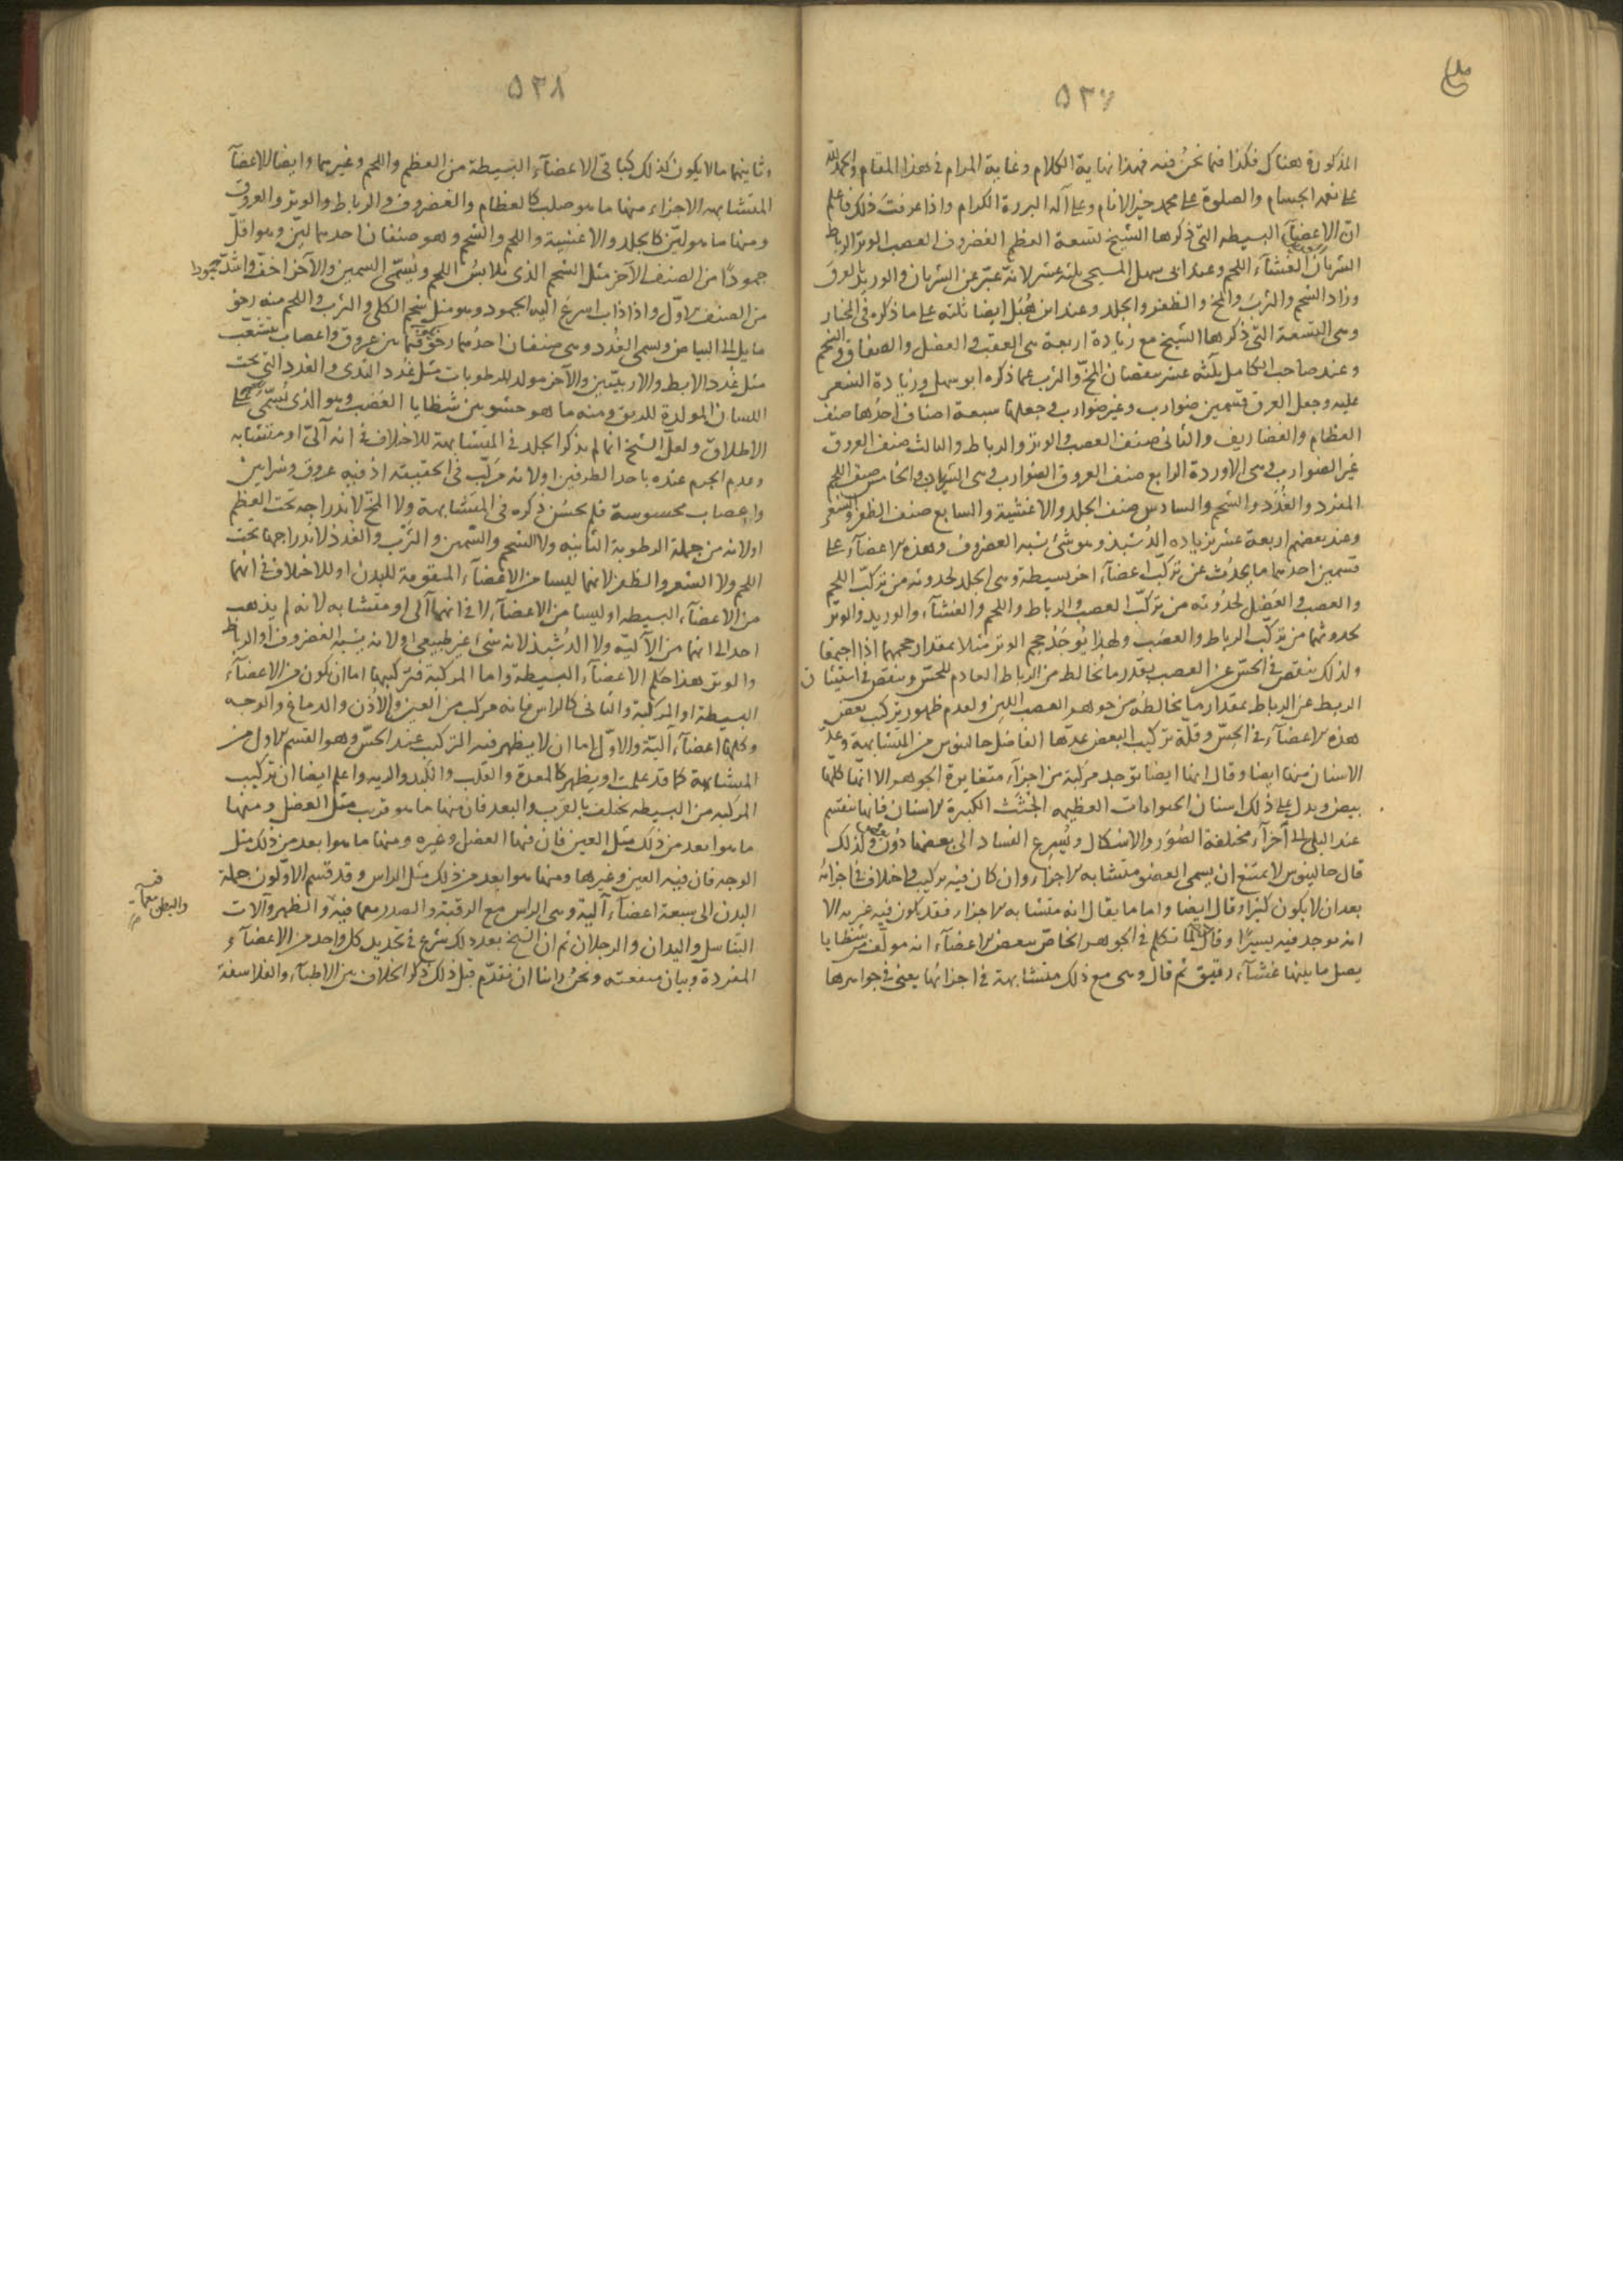 ٥٣٧
المذكورة هناك فكذا فيما نحن فيه فهذا نهاية الكلام وغاية المرام فى هذا المقام والحمد لله
على نعمه الجسام والصلوة على محمد خير الانام وعلى آله البررة الكرام واذا عرفت ذلك فاعلم
ان الاعضآء البسيطه التى ذكرها الشيخ تسعة العظم الغضروف العصب الوتر الرباط
الشريان الغشآء اللحم وعند ابى سهل المسيحى ثلثه عشر لانه عبّر عن الشريان والوريد بالعرق
وزاد الشحم والثرب والمخ والظفر والجلد وعند ابن هُبَل ايضا ثلثه على ما ذكره فى المختار
وهى التسعة التى ذكرها الشيخ مع زيادة اربعة هى العقب والعضل والصفاق والشحم
وعند صاحب الكامل ثلثه عشر بنقصان المخّ والثرب عما ذكره ابو سهل وزيادة الشعر
عليه وجعل العرق قسمين ضوارب وغير ضوارب وجعلها سبعة اصناف احدها صنف
العظام والغضاريف والثانى صنف العصب والوتر والرباط والثالث صنف العروق
غير الضوارب وهى الاوردة الرابع صنف العروق الضوارب وهى الشريانات والخامس صنف اللحم
المفرد والغُدَد والشحم والسادس صنف الجلد والاغشية والسابع صنف الظفر والشعر
وعند بعضهم اربعة عشر بزياده الدُشبذ وهو شئ يشبه الغضروف وهذه الاعضآء على
قسمين احدهما ما يحدُث عن تركّب اعضآء اخر بسيطة وهى الجلد لحدوثه من تركّب اللحم
والعصب والعَضَل لحدُوثه من تركّب العصب والرباط واللحم والغشآء والوريد والوتر
لحدوثهما من تركّب الرباط والعصب ولهذا يُوجَدُ حجم الوتر مثلا بمقدار حجمهما اذا اجتمعا
ولذلك ينقص فى الحسّ عن العصب بقدر ما يُخالط من الرباط العادم للحسّ وينقص فى استيثاق
الربط عن الرباط بمقدار ما يخالطه من جوهر العصب اللين ولعدم ظهور تركب بعض
هذه الاعضآء فى الحسّ وقلّة تركيب البعض عدّها الفاضل جالينوس من المتشابهة وعدّ
الاسنان منها ايضا وقال انها ايضا توجد مركبة من اجزآء متغايرة الجوهر الا انها كلها
بيض ويدل على ذلك اسنان الحيوانات العظيمه الجثث الكبيرة الاسنان فانها تنقسم
عند البلى الى اجزآء مختلفة الصُوَر والاشكال ويُسرع الفساد الى بعضها دُون بعض ولذلك
قال جالينوس لا يمتنع ان يسمى العضو متشابه الاجزاء وان كان فيه تركيب واختلاف فى اجزائه
بعد ان لا يكون كثيرا وقال ايضا واما ما يقال انه متشابه الاجزاء فقد يكون فيه غيريه الا
انه يوجد فيه يسيرًا وقال لما تكلم فى الجوهر الخاصّ ببعض الاعضآء انه مولّف من شظايا
يصل ما بينها غشآء رقيق ثم قال وهى مع ذلك متشابهة فى اجزائها يعنى فى جواهرها
٥٣٨
وثانيهما ما لا يكون كذلك كباقى الاعضآء البسيطة من العظم واللحم وغيرهما وايضا الاعضآ
المتشابهه الاجزاء منها ما هو صلب كالعظام والغضروف والرباط والوتر والعروق
ومنها ما هو ليّن كالجلد والاغشية واللحم والشحم وهو صنفان احدهما ليّن وهو اقلّ
جمودًا من الصنف الآخر مثل الشحم الذى يلابس اللحم ويُسمّى السمين والآخر اخفّ واشدّ جمودا
من الصنف الاوّل واذا ذاب اسرع اليه الجمود وهو مثل شحم الكلى والثرب واللحم منه رخو
مايل الى البياض ويسمى الغُدد وهى صنفان احدُهما رخو فيما بين عروق واعصاب يتشعّب
مثل غُدد الابط والاربيّتين والآخر مولد للرطوبات مثل غدد الثدى والغدد التى تحت
اللسان المولدة للريق ومنه ما هو حشو بين شظايا العَصَب وهو الذى يُسَمّى لحما على
الاطلاق ولعلّ الشيخ انما لم يذكر الجلد فى المتشابهة للاختلاف فى انه آلىّ او متشابه
وعدم الجزم عنده باحد الطرفين او لانه مركّب فى الحقيقة اذ فيه عروق وشرايين
واعصاب محسوسة فلم يحسُن ذكره فى المتشابهة ولا المخّ لاندراجه تحت العظم
او لانه من جملة الرطوبة الثانيه ولا الشحم والسّمين والثرْب والغدد لاندراجها تحت
اللحم ولا الشعر والظفر لانهما ليسا من الاعضآء المقومة للبدن او للاختلاف فى انهما
من الاعضآء البسيطه او ليسا من الاعضآء لا فى انهما آلى او متشابه لانه لم يذهب
احد الى انهما من الآليّه ولا الدُشبذ لانه شئ غير طبيعى او لانه يشبه الغضروف او الرباط
والوتر هذا حكم الاعضآء البسيطة واما المركبة فتركيبها اما ان يكون من الاعضآء
البسيطة او المركبة والثانى كالراس فانه مركب من العين والاُذن والدماغ والوجه
وكلها اعضآء آليّة والاوّل اما ان لا يظهر فيه التركيب عند الحسّ وهو القسم الاول من
المتشابهة كما قد علمت او يظهر كالمعدة والقلب والكبد والريه واعلم ايضا ان تركيب
المركبه من البسيطه يختلف بالقرب والبعد فان منها ما هو قريب مثل العضل ومنها
ما هو ابعد من ذلك مثل العين فان فيها العضل وغيره ومنها ما هو ابعد من ذلك مثل
الوجه فان فيه العين وغيرها ومنها ما هو ابعد من ذلك مثل الراس وقد قسم الاوّلون جملة
البدن الى سبعة اعضآء آلية وهى الراس مع الرقبة والصدر معما فيه والظهر وآلات
والبطن معما فيه
التناسل واليدان والرجلان ثم ان الشيخ بعد ذلك شرع فى تحديد كل واحد من الاعضآء
المفردة وبيان منفعته ونحن راينا ان نقدّم قبل ذلك ذكر الخلاف بين الاطبآء والفلاسفة